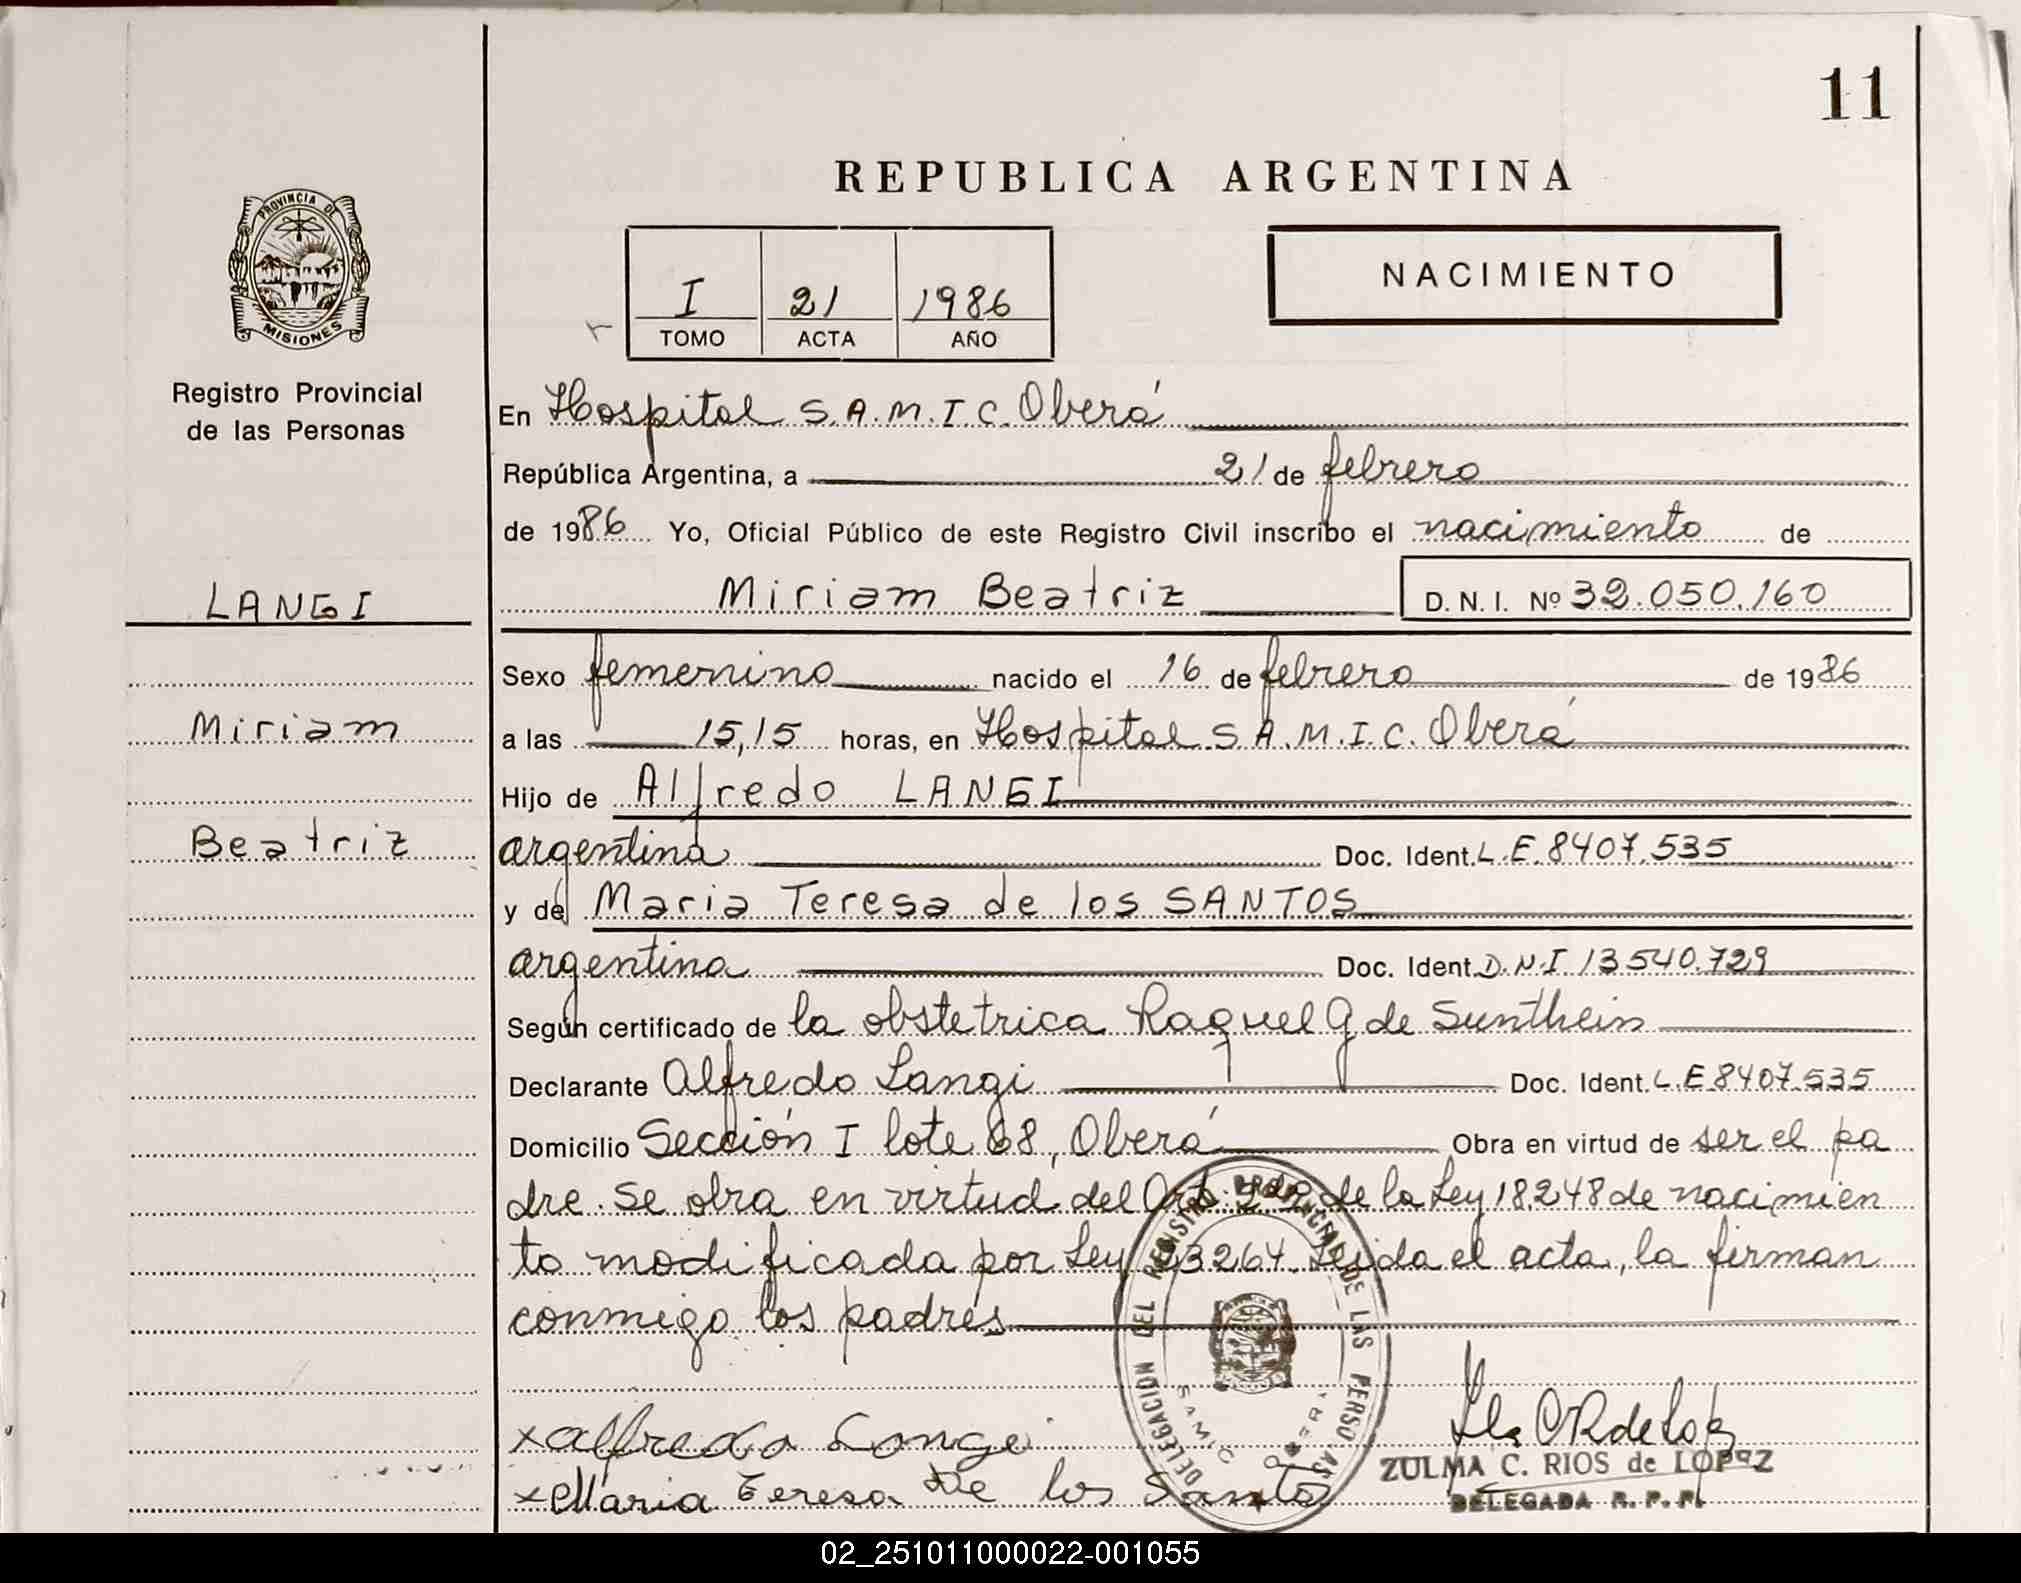 11
REPUBLICA ARGENTINA
PROVINCIA DE
MISIONES
Registro Provincial
de las Personas
I 21 1986
TOMO ACTA AÑO
NACIMIENTO
En Hospital S.A.M.I.C. Oberá
República Argentina, a 21 de febrero
de 1986 Yo, Oficial Público de este Registro Civil inscribo el nacimiento de
LANGI
Miriam Beatriz D.N.I. Nº 32.050.160
Sexo femenino nacido el 16 de febrero de 1986
Miriam
a las 15,15 horas, en Hospital S.A.M.I.C. Oberá
Hijo de Alfredo LANGI
Beatriz
argentina Doc. Ident. L.E. 8407.535
y de Maria Teresa de los SANTOS
argentina Doc. Ident. D.N.I 13540.729
Según certificado de la obstetrica Raquel G de Sunthein
Declarante Alfredo Langi Doc. Ident. L.E 8407.535
Domicilio Sección I lote 68, Oberá Obra en virtud de ser el pa
dre. Se obra en virtud del Art. de la Ley 18.248 de nacimien
to modificada por Ley 23264. Leida el acta, la firman
conmigo los padres
DELEGACION DEL REGISTRO PROVINCIAL DE LAS PERSONAS
SAMIC OBERA
x Alfredo Langi
x Maria Teresa De los Santos
ZULMA C. RIOS de LOPEZ
DELEGADA R. P. P.
02_251011000022-001055